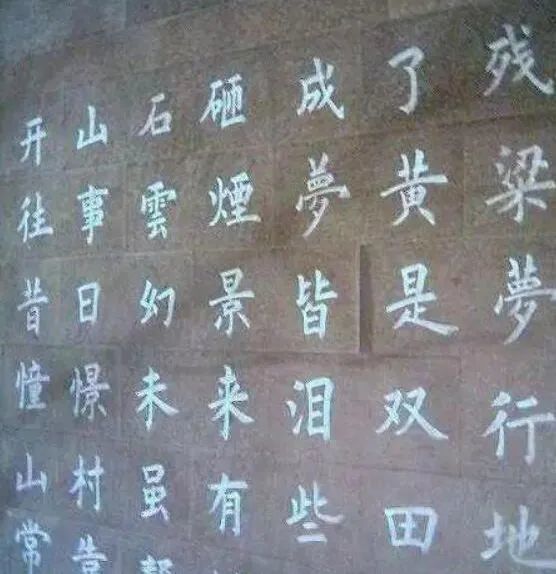 开山石砸成了残
往事雲煙夢黄粱
昔日幻景皆是夢
憧憬未来泪双行
山村虽有些田地
常